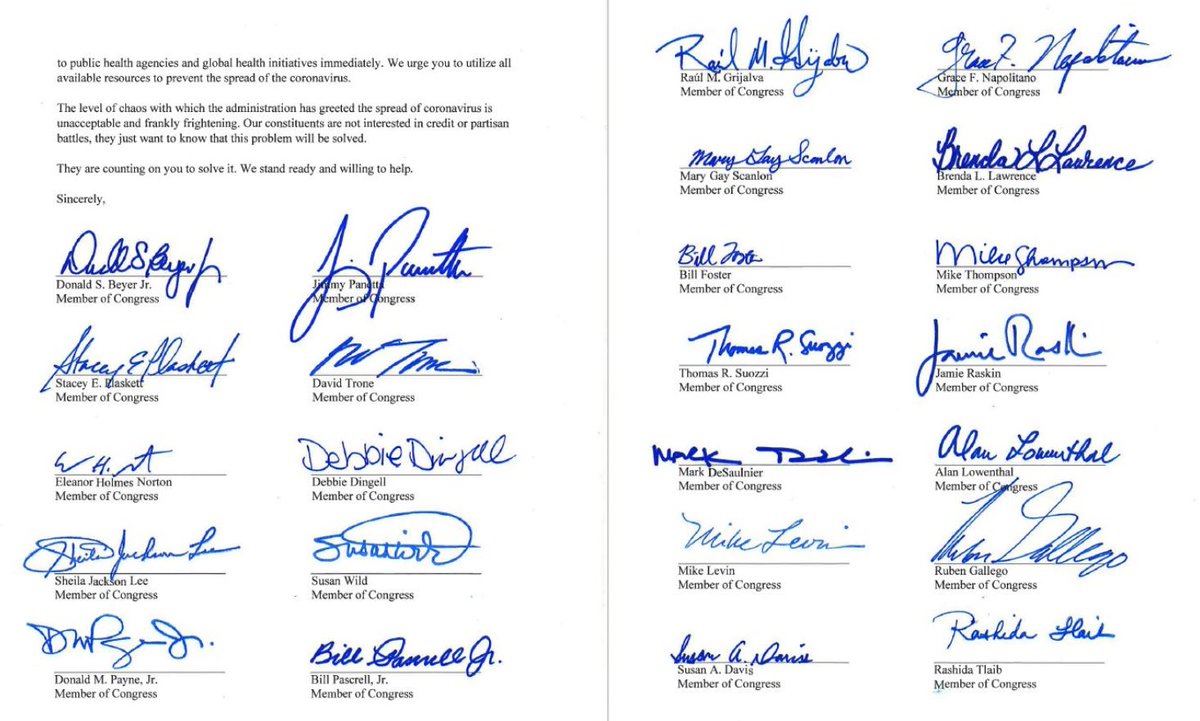 to public health agencies and global health initiatives immediately. We urge you to utilize all
available resources to prevent the spread of the coronavirus.
The level of chaos with which the administration has greeted the spread of coronavirus is
unacceptable and frankly frightening. Our constituents are not interested in credit or partisan
battles, they just want to know that this problem will be solved.
They are counting on you to solve it. We stand ready and willing to help.
Sincerely,
Donald S. Beyer Jr.
Member of Congress
Jimmy Panetta
Jimmy Panetta
Member of Congress
Stacey E Plaskett
Stacey E. Plaskett
Member of Congress
David Trone
Member of Congress
Eleanor Holmes Norton
Member of Congress
Debbie Dingell
Debbie Dingell
Member of Congress
Sheila Jackson Lee
Sheila Jackson Lee
Member of Congress
Susan Wild
Member of Congress
Donald M. Payne, Jr.
Member of Congress
Bill Pascrell Jr.
Bill Pascrell, Jr.
Member of Congress
Raúl M. Grijalva
Raúl M. Grijalva
Member of Congress
Grace F. Napolitano
Grace F. Napolitano
Member of Congress
Mary Gay Scanlon
Mary Gay Scanlon
Member of Congress
Brenda L Lawrence
Brenda L. Lawrence
Member of Congress
Bill Foster
Bill Foster
Member of Congress
Mike Thompson
Mike Thompson
Member of Congress
Thomas R. Suozzi
Thomas R. Suozzi
Member of Congress
Jamie Raskin
Jamie Raskin
Member of Congress
Mark DeSaulnier
Member of Congress
Alan Lowenthal
Alan Lowenthal
Member of Congress
Mike Levin
Mike Levin
Member of Congress
Ruben Gallego
Ruben Gallego
Member of Congress
Susan A. Davis
Susan A. Davis
Member of Congress
Rashida Tlaib
Rashida Tlaib
Member of Congress